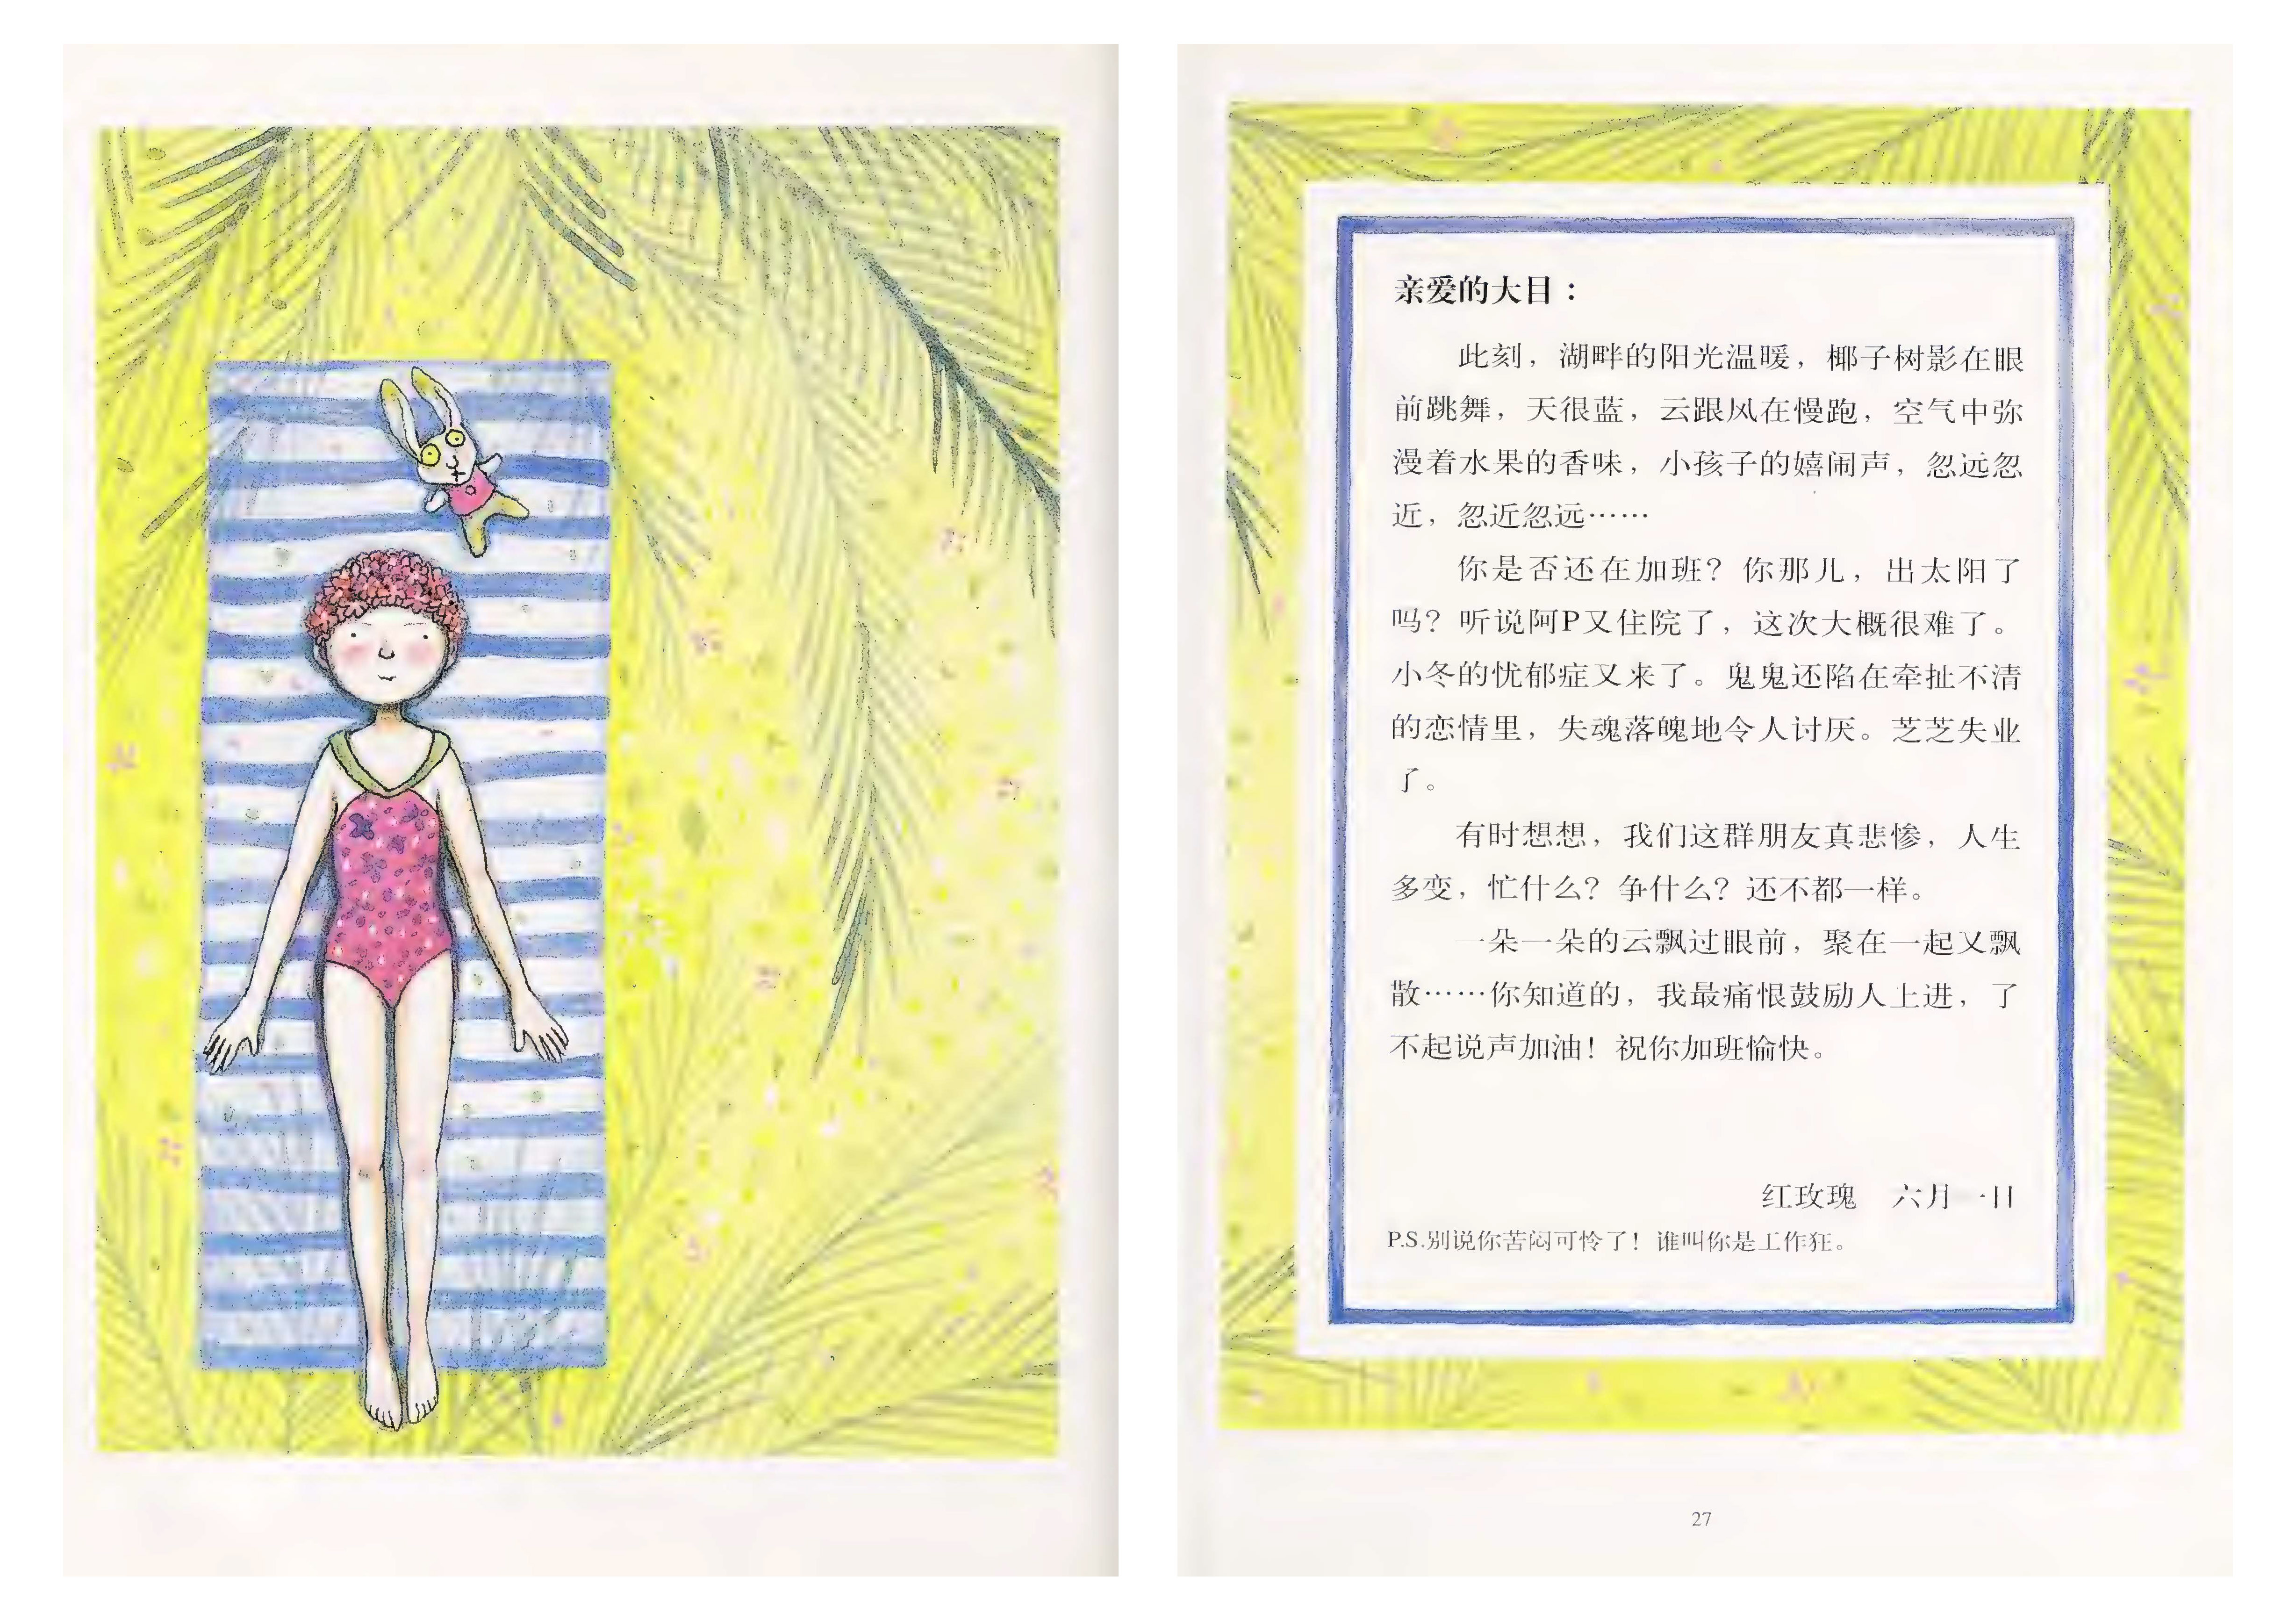 亲爱的大目：
此刻，湖畔的阳光温暖，椰子树影在眼
前跳舞，天很蓝，云跟风在慢跑，空气中弥
漫着水果的香味，小孩子的嬉闹声，忽远忽
近，忽近忽远……
你是否还在加班？你那儿，出太阳了
吗？听说阿P又住院了，这次大概很难了。
小冬的忧郁症又来了。鬼鬼还陷在牵扯不清
的恋情里，失魂落魄地令人讨厌。芝芝失业
了。
有时想想，我们这群朋友真悲惨，人生
多变，忙什么？争什么？还不都一样。
一朵一朵的云飘过眼前，聚在一起又飘
散……你知道的，我最痛恨鼓励人上进，了
不起说声加油！祝你加班愉快。
红玫瑰　六月一日
P.S.别说你苦闷可怜了！谁叫你是工作狂。
27